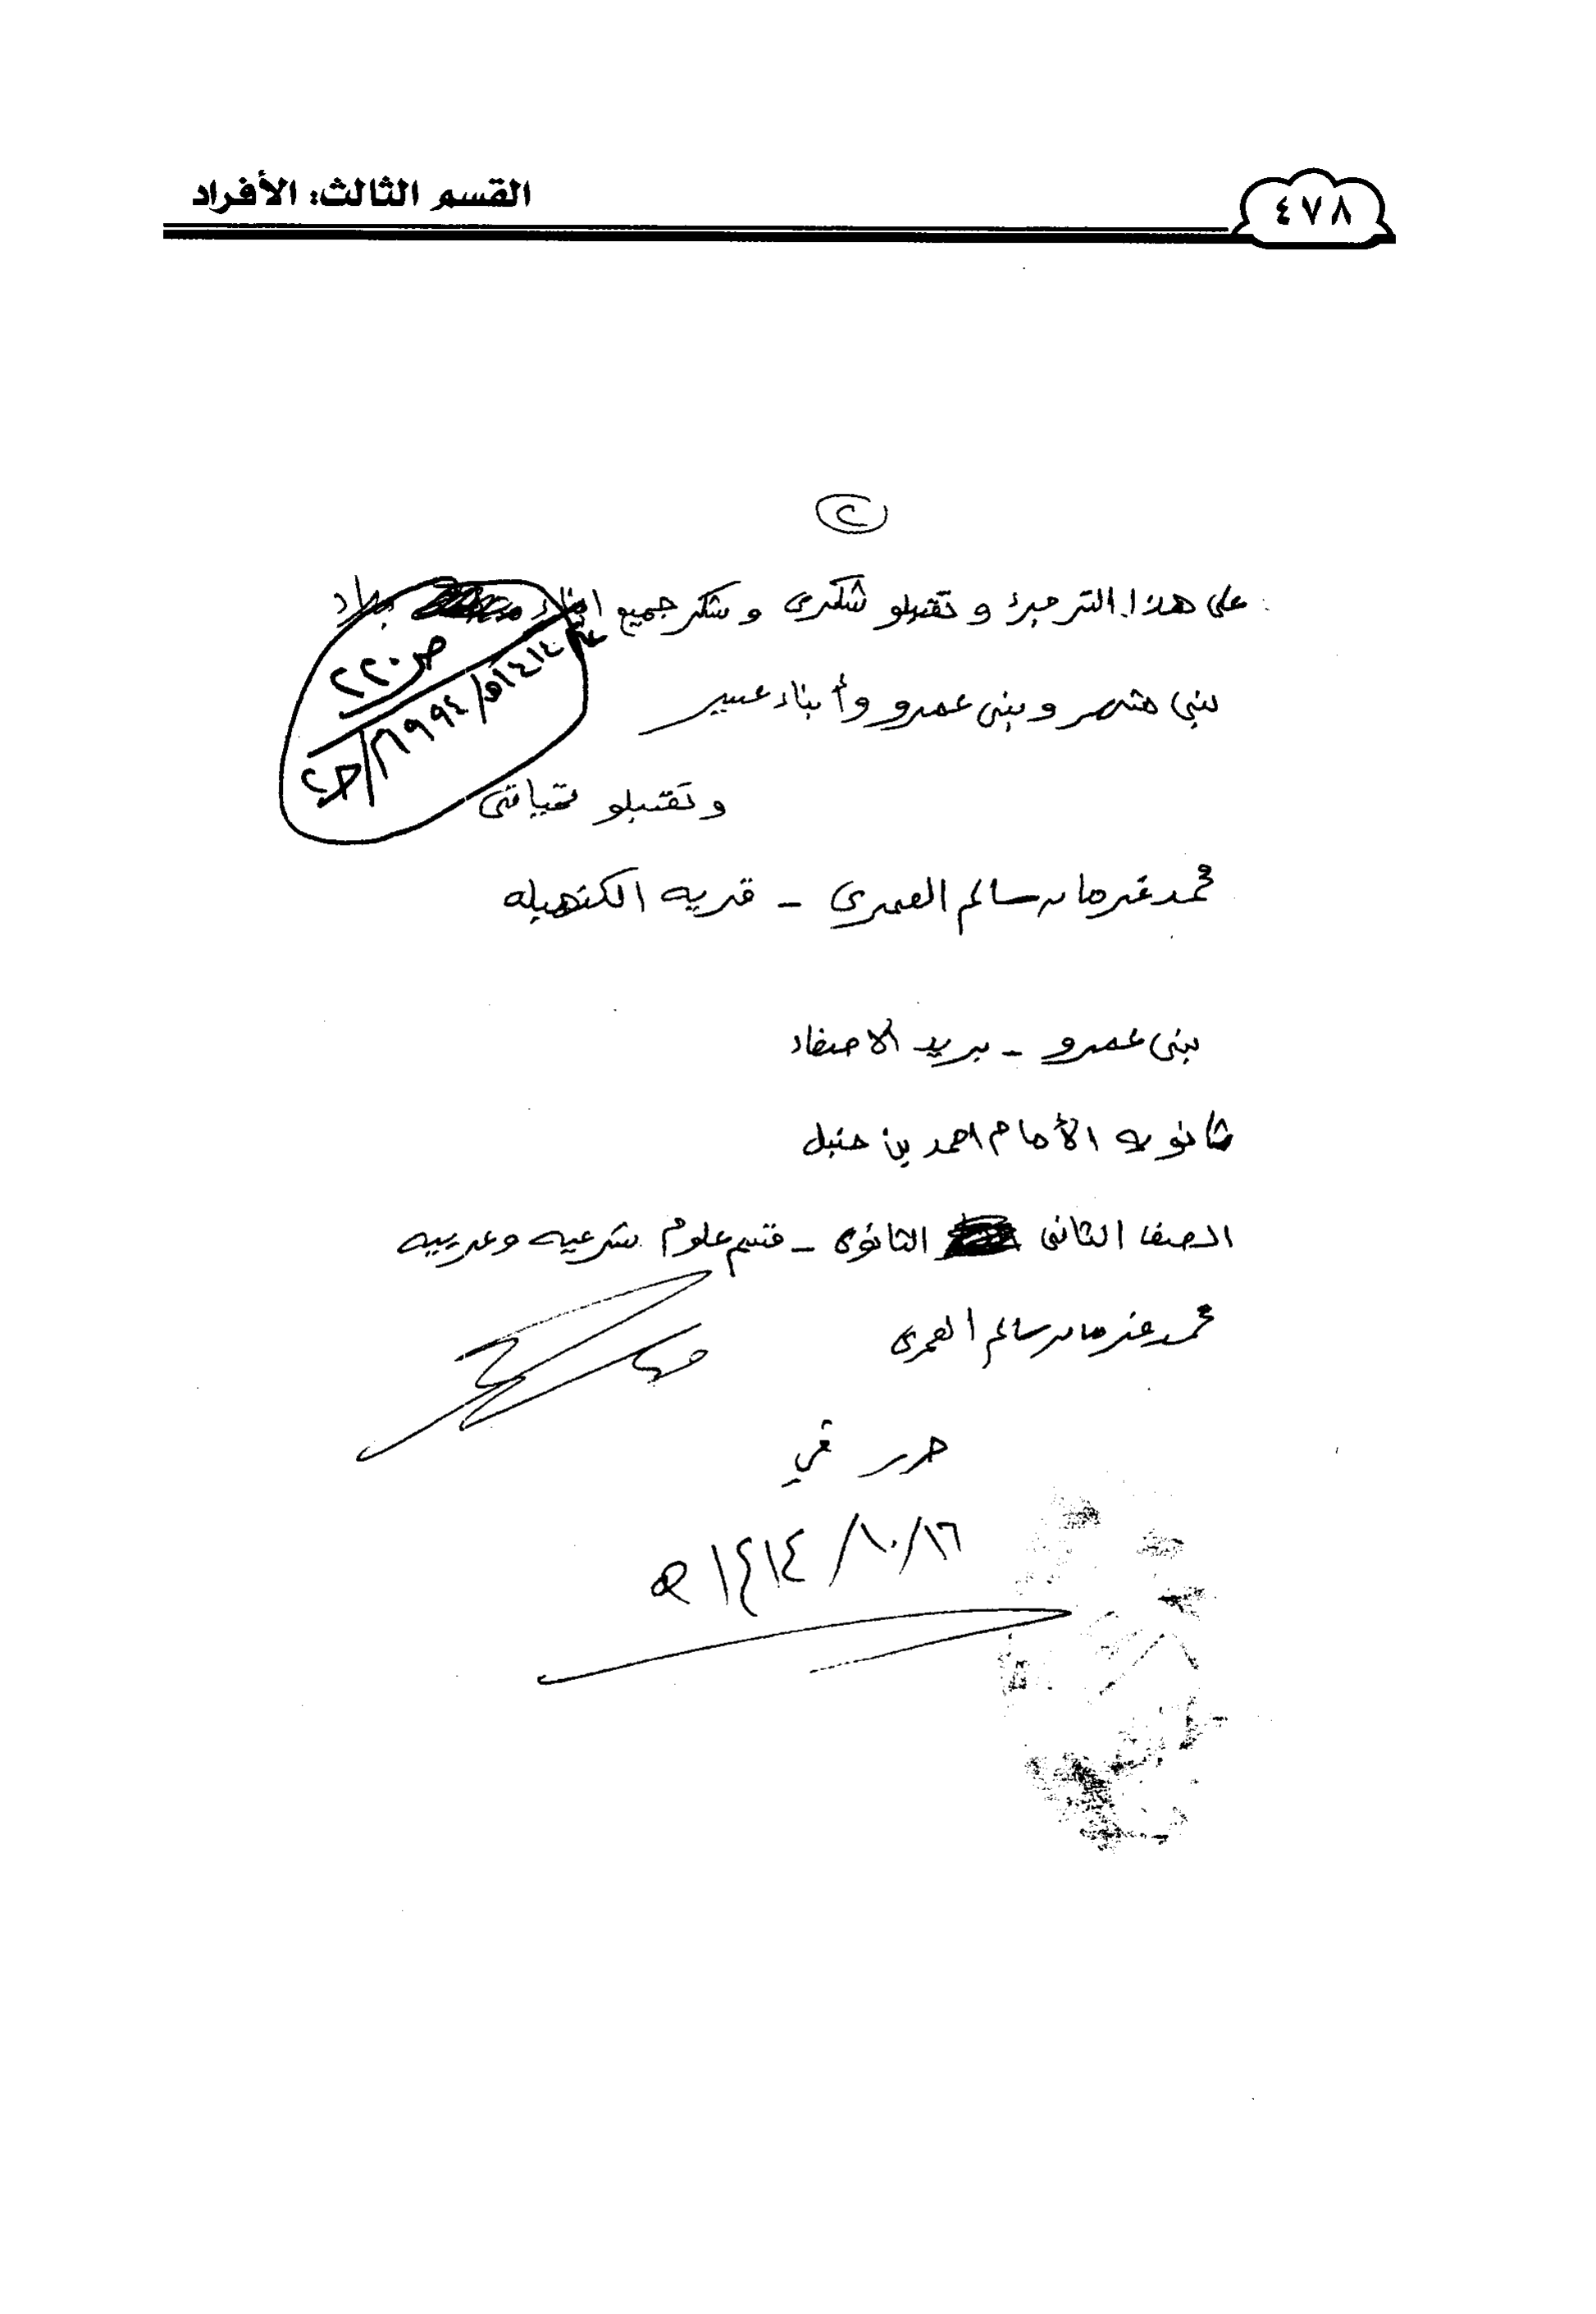 ٤٧٨
القسم الثالث: الأفراد
٢
على هذا وتقبلو شكرى وشكر جميع ابناء بلاد
بنى شهر وبنى عمرو وأبناء عسير
ص ٢٢٠
١٤١٤هـ/١٩٩٤م
وتقبلو تحياتى
محمد غرمان سالم العمرى - قريه
بنى عمرو - بريد الاصفاد
ثانويه الأمام احمد بن حنبل
الصف الثانى الثانوى - قسم علوم شرعيه وعربيه
محمد غرمان سالم العمرى
حرر في
١٦/١٠/١٤١٤ه